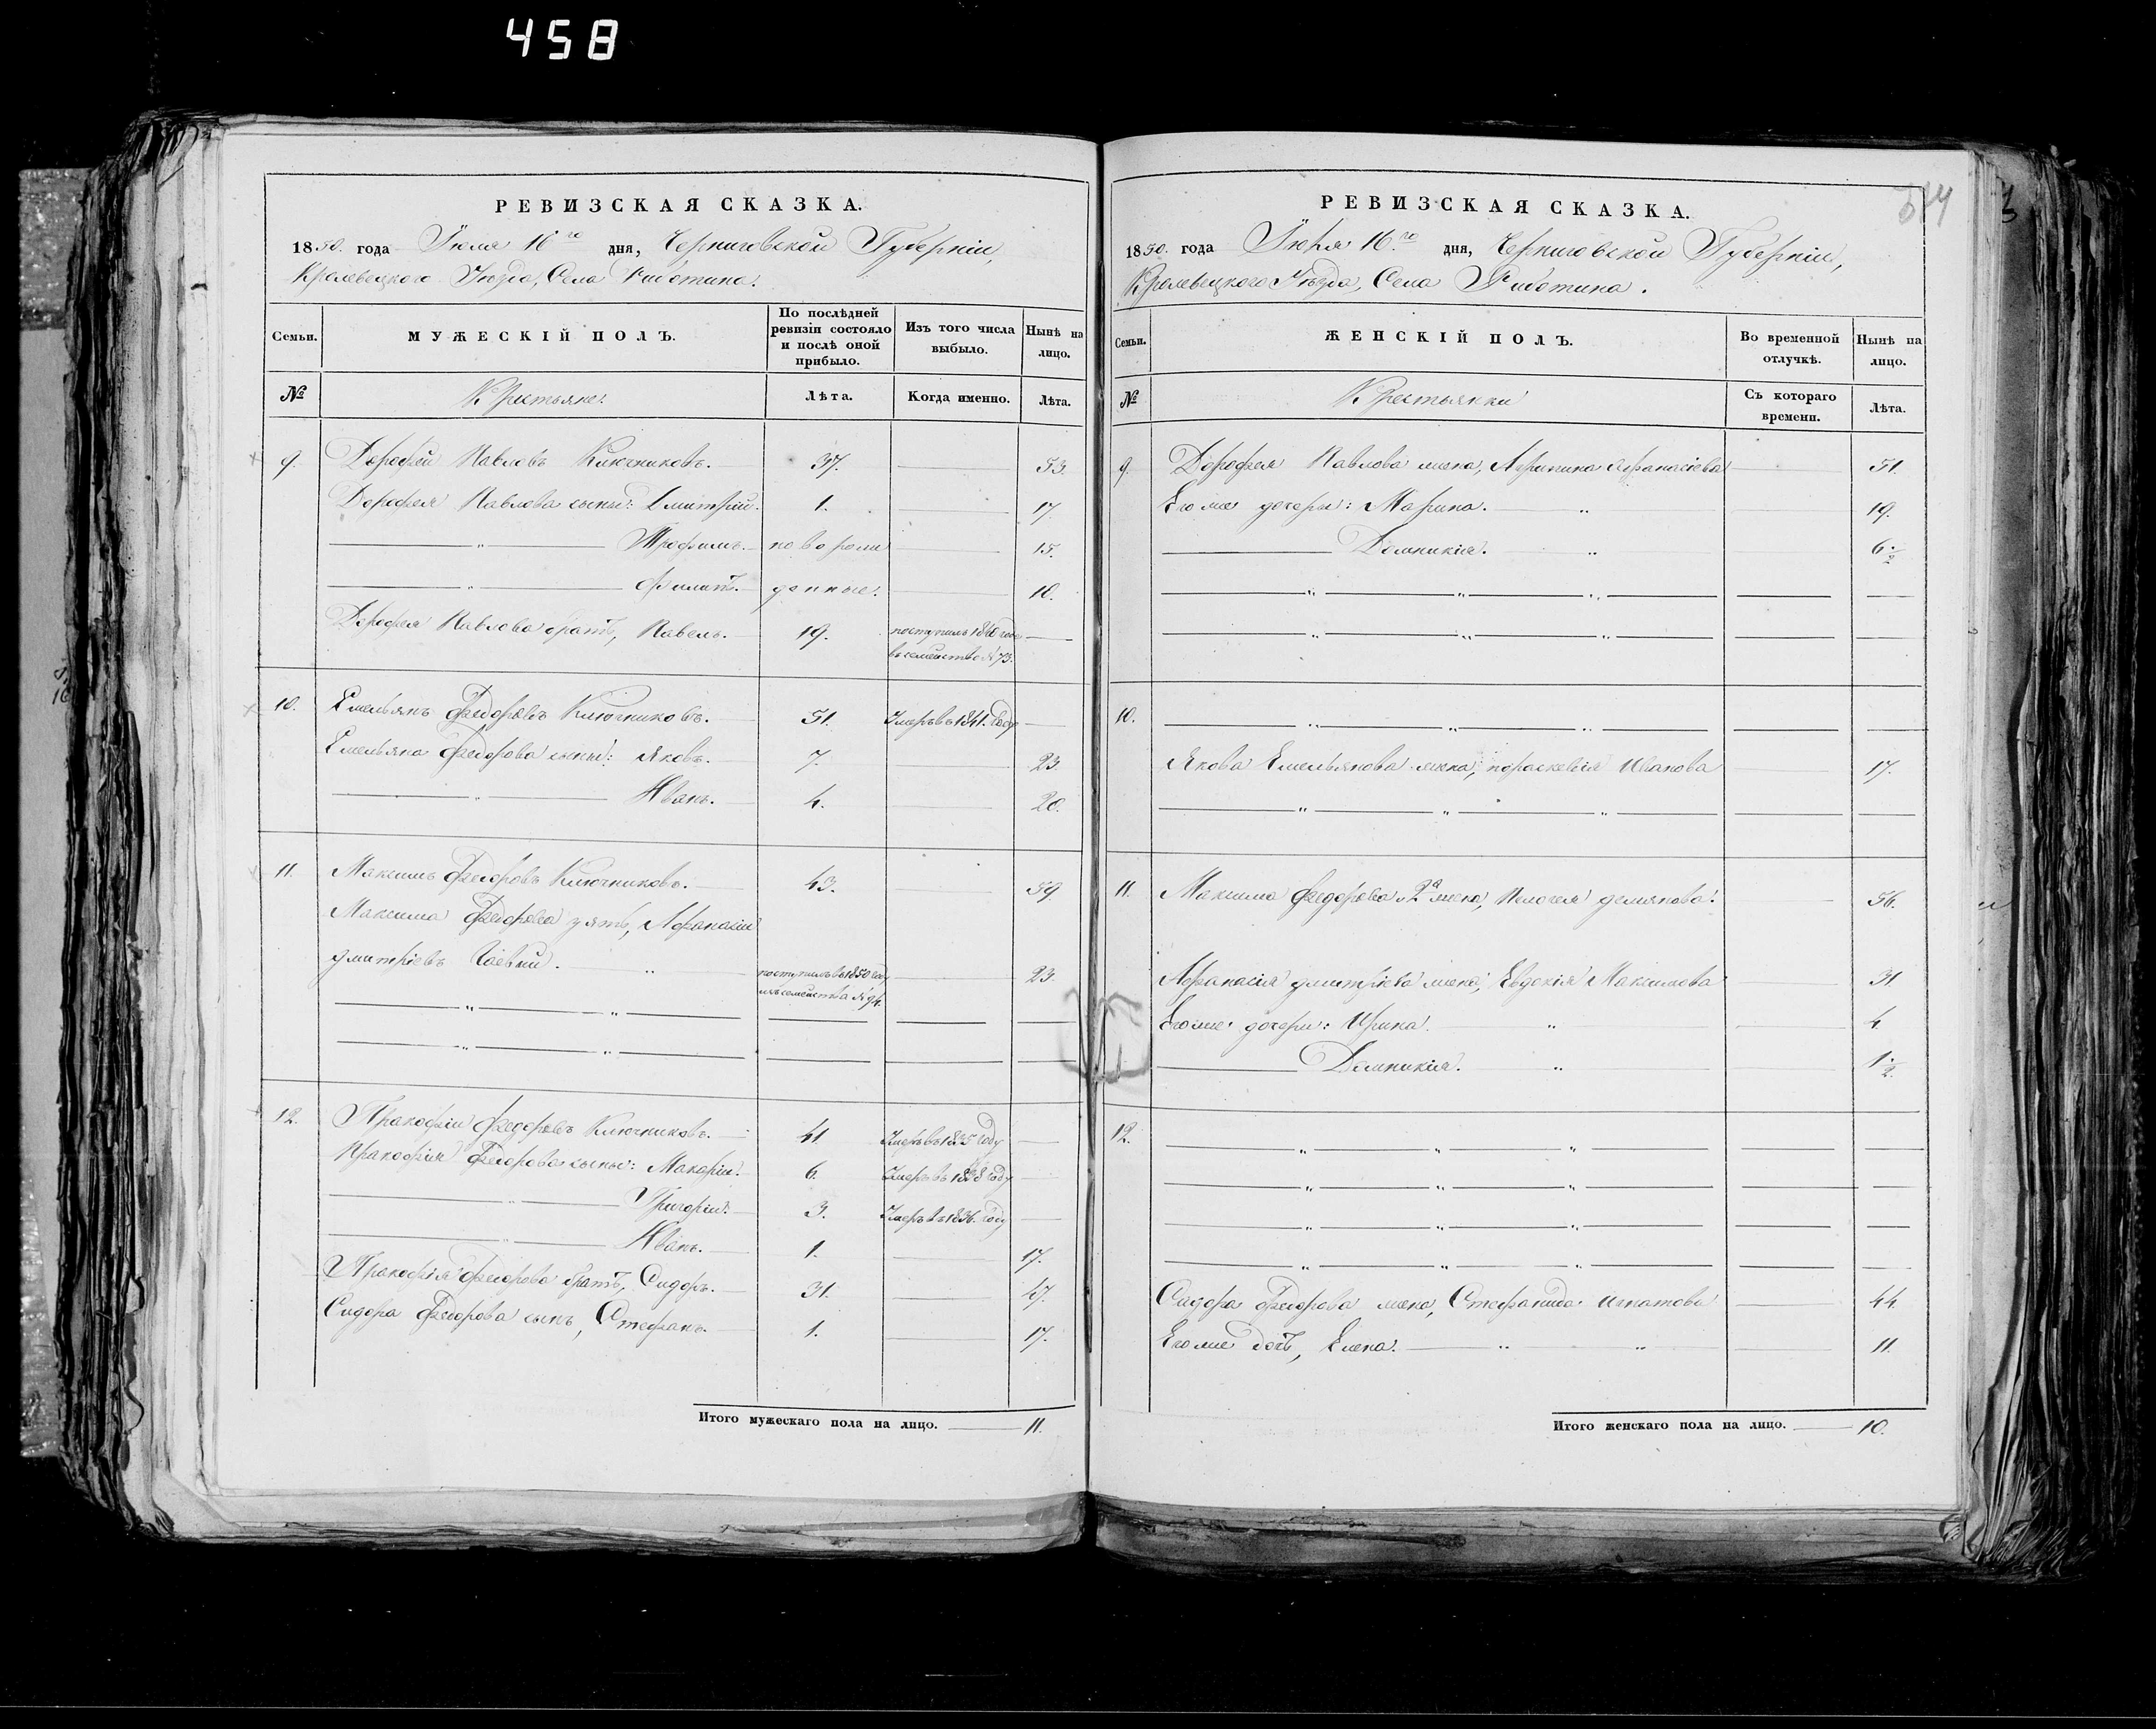 458
РЕВИЗСКАЯ СКАЗКА.
1850. года Іюля 16го дня, Черниговской Губерніи,
Кролевецкого Уѣзда, Села
Семьи.
МУЖЕСКІЙ ПОЛЪ.
По послѣдней ревизіи состояло и послѣ оной прибыло.
Изъ того числа выбыло.
Нынѣ на лицо.
№
Крестьяне.
Лѣта.
Когда именно.
Лѣта.
9. Дорофей Павловъ Ключниковъ. 37. 53.
Дорофея Павлова сыны: Дмитрій. 1. 17.
Трофимъ. новорож 15.
Филипъ. денные. 10.
Дорофея Павлова братъ, Павелъ. 19. поступилъ 1840 года
въ семейство № 73.
10. Емельянъ Федоровъ Ключниковъ. 51. Умеръ въ 1841. году
Емельяна Федорова сыны: Яковъ. 7. 23.
Иванъ. 4. 20.
11. Максимъ Федоровъ Ключниковъ. 43. 59.
Максима Федорова зять, Афанасій
Дмитріевъ поступилъ въ 1850 году 23.
изъ семейства № 94.
12. Пракофій Федоровъ Ключниковъ. 41. Умеръ въ 1835 году
Пракофія Федорова сыны: Макарій. 6. Умеръ въ 1838 году
Григорій. 3. Умеръ въ 1836. году
Иванъ. 1. 17.
Пракофія Федорова братъ, Сидоръ. 31. 47.
Сидора Федорова сынъ, Стефанъ. 1. 17.
Итого мужескаго пола на лицо. 11.
РЕВИЗСКАЯ СКАЗКА.
514
1850. года Іюля 16.го дня, Черниговской Губерніи,
Кролевецкого Уѣзда, Села
Семьи.
ЖЕНСКІЙ ПОЛЪ.
Во временной отлучкѣ.
Нынѣ на лицо.
№
Крестьянки
Съ котораго времени.
Лѣта.
9. Дорофея Павлова жена, Агрипина Афанасіева 51.
Его же дочери: Марина. 19.
Домникія. 6 1/2
10.
Якова Емельянова жена, Параскевія Иванова 17.
11. Максима Федорова 2я жена, Пелагея Демянова. 56.
Афанасія Дмитріева жена, Евдокія Максимова 31
Его же дочери: Ирина. 4
Домникія. 1 1/2
12.
Сидора Федорова жена, Стефанида Игнатова 44.
Его же дочь, Елена. 11.
Итого женскаго пола на лицо. 10.